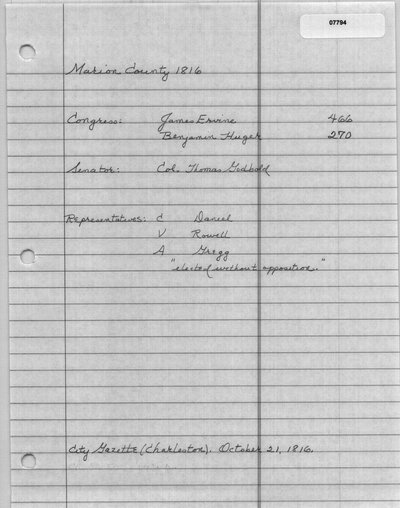 07794
Marion County 1816
Congress: James Ervine 466
Benjamin Huger 270
Senator: Col. Thomas Godbold
Representatives: C Daniel
V Rowell
A Gregg
"elected without opposition."
City Gazette (Charleston). October 21, 1816.